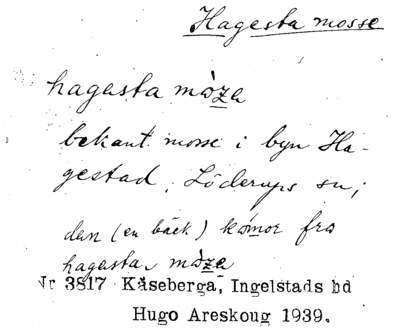 Hagesta mosse
hagasta màza
bekant mosse i byn Ha-
gestad, Löderups sn;
dan (en bäck) kómor fra
hagasta màza
Nr 3817 Kåseberga, Ingelstads hd
Hugo Areskoug 1939.